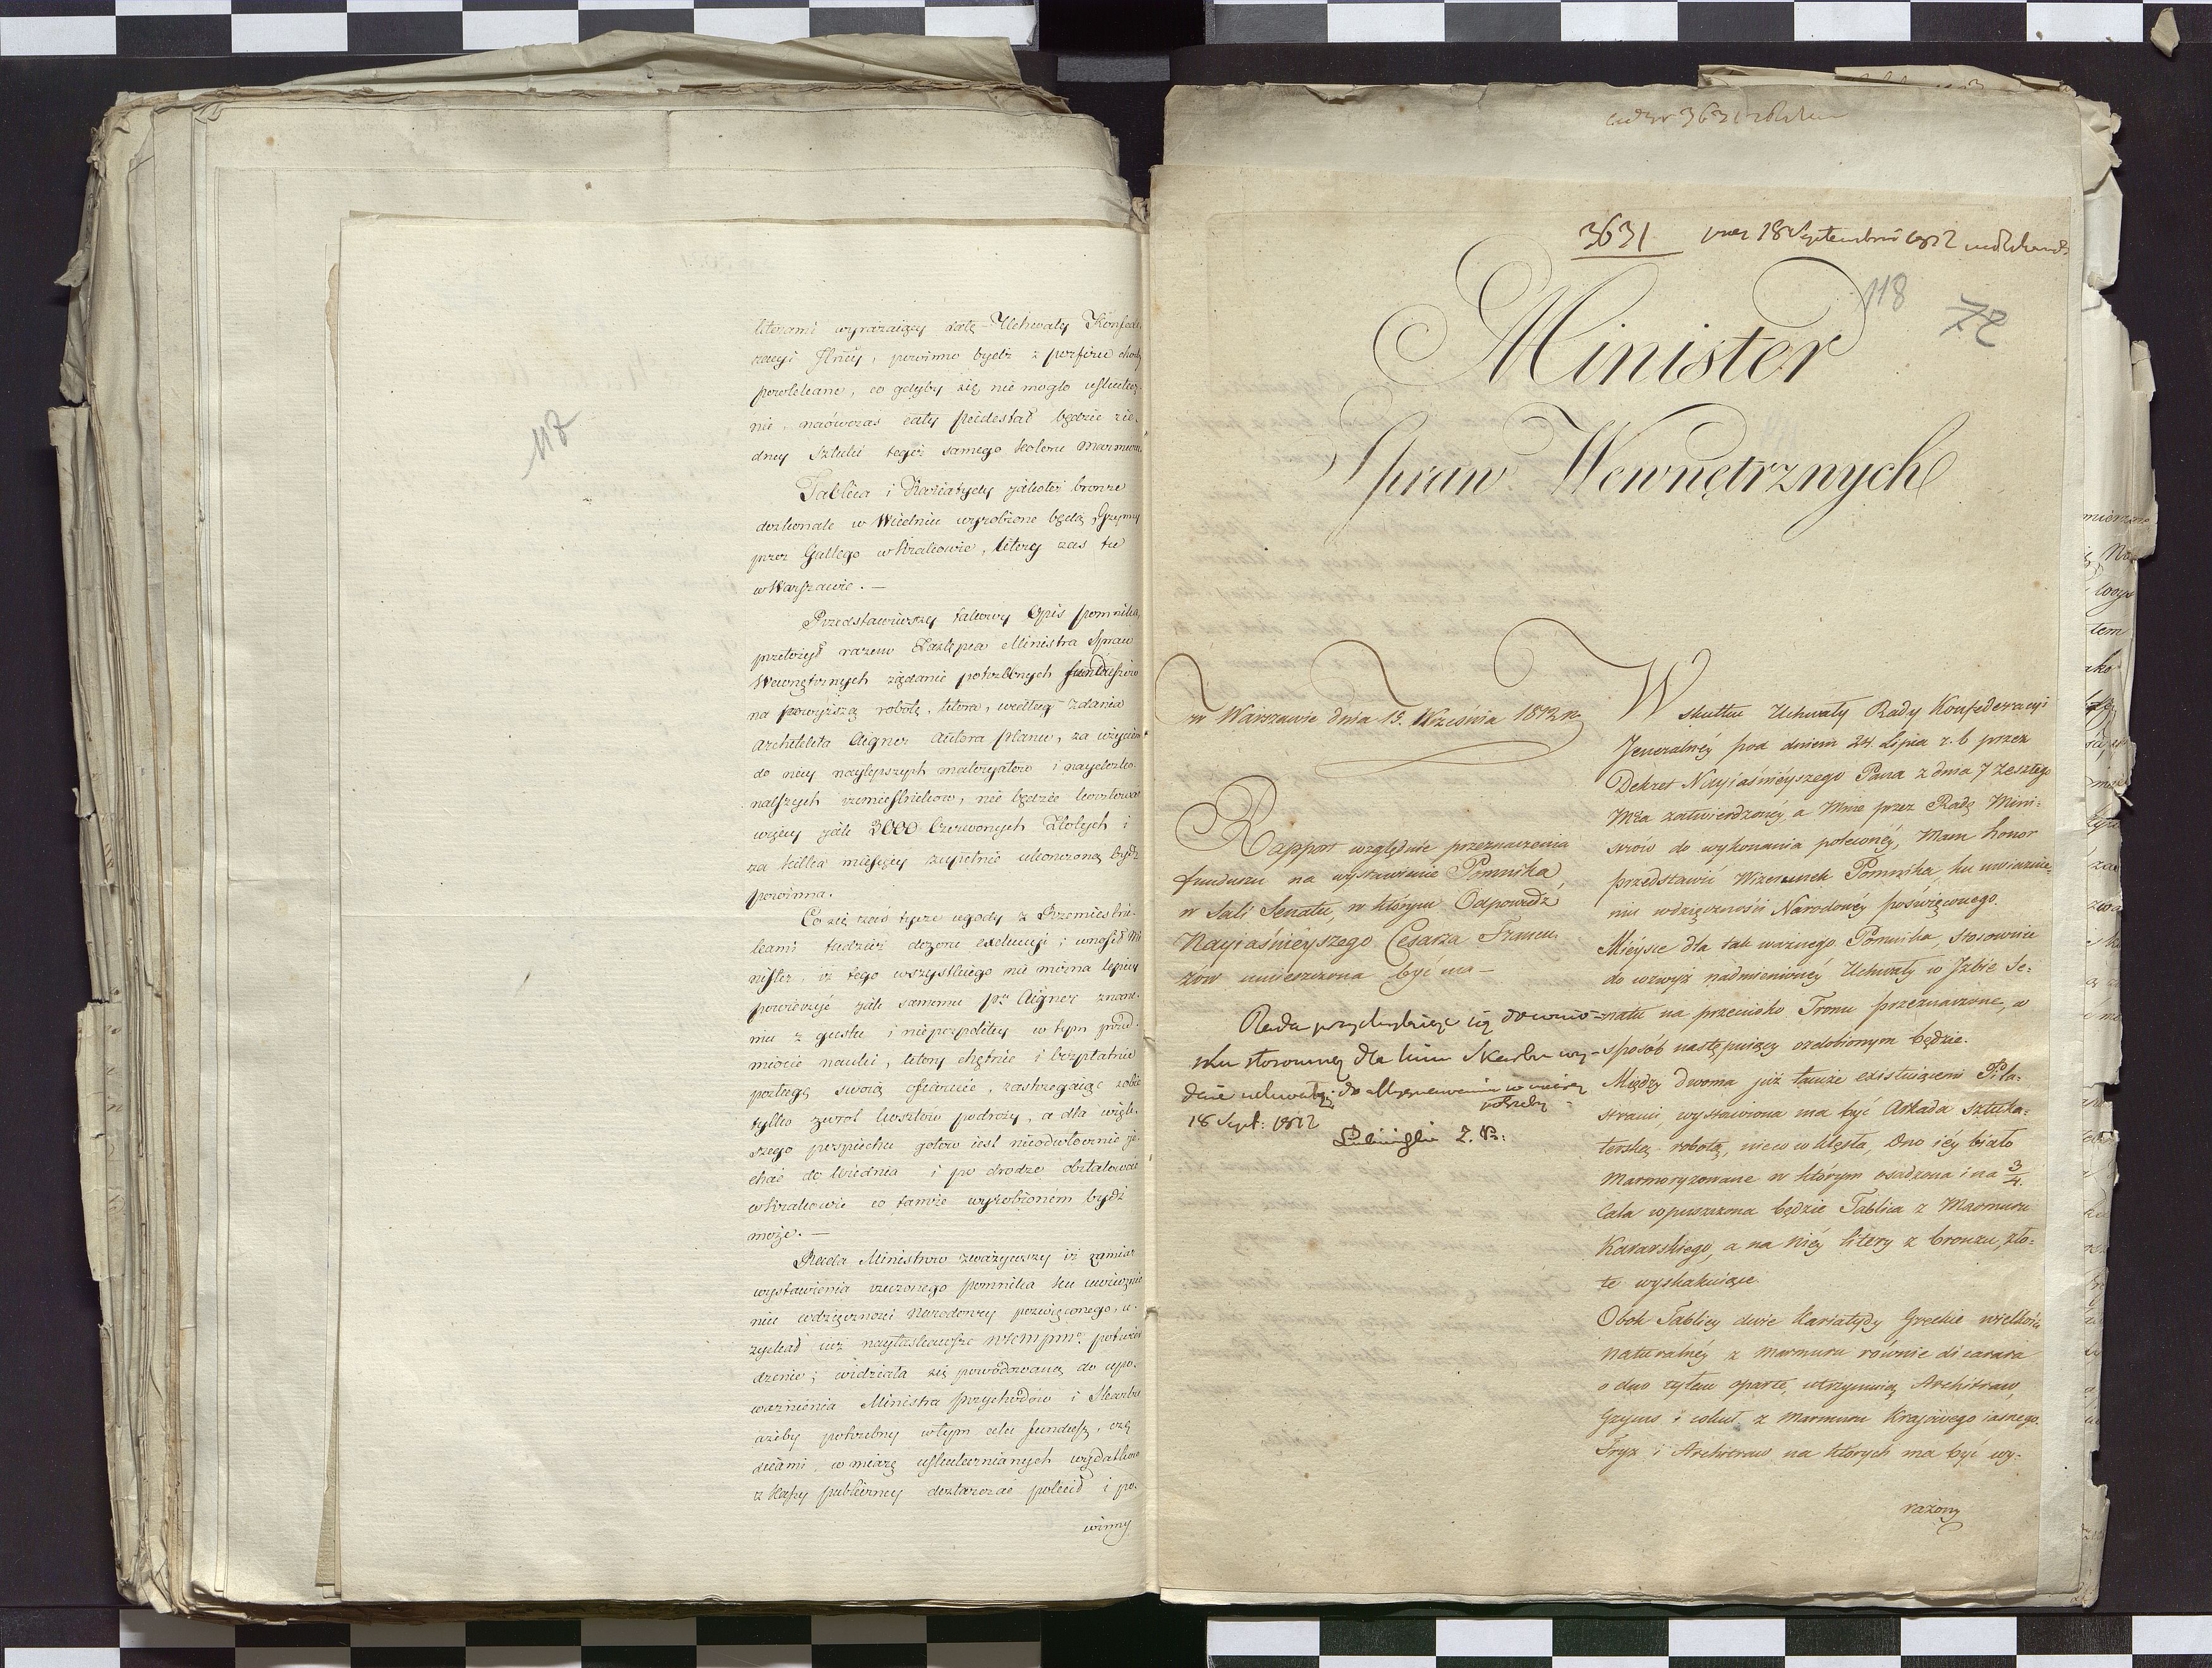 117
literami wyrażaiący datę Uchwały Konfede
racyi Jlney, powinno bydź z porfiru
powlekane, co gdyby się nie mogło uskutecz
nić, naówczas cały peidestał będzie zie
dney sztuki tegoż samego koloru marmuru
Tablica i Kariatydy jakoteż bronze
doskonale w Wiedniu wyrobione będą, Gzymsy
przez Gallego w Krakowie, litery zas tu
w Warszawie. —
Przedstawiwszy takowy Opis pomnika,
przełożył razem Zastępca Ministra Spraw
Wewnętrznych żądanie potrzebnych funduszów
na powyższą robotę, która, według zdania
Architekta Aigner autora planu, za użyciem
do niey naylepszych materyałow i naydosko
nalszych rzemieslnikow, nie będzie kosztowa
więcy jak 3000 Czerwonych Złotych i
za kilka miesięcy zupełnie ukonczoną bydź
powinna.
Co się zaś tycze ugody z Rzemieślni
kami tudzież dozoru exekucyi; wnosił Mi
nister, iż tego wszystkiego nie można lepiey
powierzyć jak samemu Pu Aigner znane
mu z gustu i niepospolitey w tym przed
miocie nauki, który chętnie i bezpłatnie
posługę swoią ofiaruie, zastrzegaiąc sobie
tylko zwrot kosztow podroży, a dla więk
szego pospiechu gotow iest nieodwłocznie je
chać do Wiednia i po drodze obstalować
w Krakowie co tamże wyrobionem bydź
może. —
Rada Ministrow zważywszy iż zamiar
wystawienia rzeczonego pomnika ku uwieczne
niu wdzięcznosci Narodowey poswięconego, u
zyskał iuż nayłaskawsze potwier
dzenie; widziała się powodowaną do upo
ważnienia Ministra Przychodów i Skarbu
ażeby potrzebny w tym celu fundusz, czę
sciami, w miarę uskutecznianych wydatkow
z Kassy publiczney dostarczać polecił i po
winny
3631 18 Septembris 1812
118
72
Minister
Spraw Wewnętrznych
w Warszawie dnia 13. Września 1812 r.
Rapport względnie przeznaczenia
funduszu na wystawienie Pomnika
w Sali Senatu, w którym Odpowiedź
Nayiaśnieyszego Cesarza Francu
zów umieszczona być ma —
Rada przychylaiąc się do wnio
sku stosowną dla Skarbu wy
da uchwałę do w miarę
potrzeby
18 Sept: 1812
W skutku Uchwały Rady Konfederacyi
Jeneralnéy pod dniem 24 Lipca r. b przez
Dekret Nayiaśnieyszego Pana z dnia 7 zeszłego
Mca zatwierdzonéy, a Mnie przez Radę Mini:
strów do wykonania poleconéy, Mam honor
przedstawić Wizerunek Pomnika, ku uwiecznie:
niu wdzięczności Narodowéy poświęconego.
Mieysce dla tak ważnego Pomnika, stosownie
do wzwyż nadmienionéy Uchwały w Jzbie Se:
natu na przeciwko Tronu przeznaczone, w
sposób następuiący ozdobionym będzie.
Między dwoma już tamże existuiącemi Pila:
strami, wystawiona ma być Arkada sztuka:
terską robotą, nieco wklęsła, dno iéy biało
marmoryzowane w którym osadzona i na 3/4
Cala wpuszczona będzie Tablica z Marmuru
Kararskiego, a na niéy litery z bronzu, zło:
te wyskakuiące
Obok Tablicy dwie Kariatydy Greckie wielkości
naturalnéy z marmuru równie di carara
o dno tyłem oparte, utrzymuią Architraw,
Gzyms i z marmuru Krajowego iasnego.
Fryz i Architraw na których ma być wy-
rażony